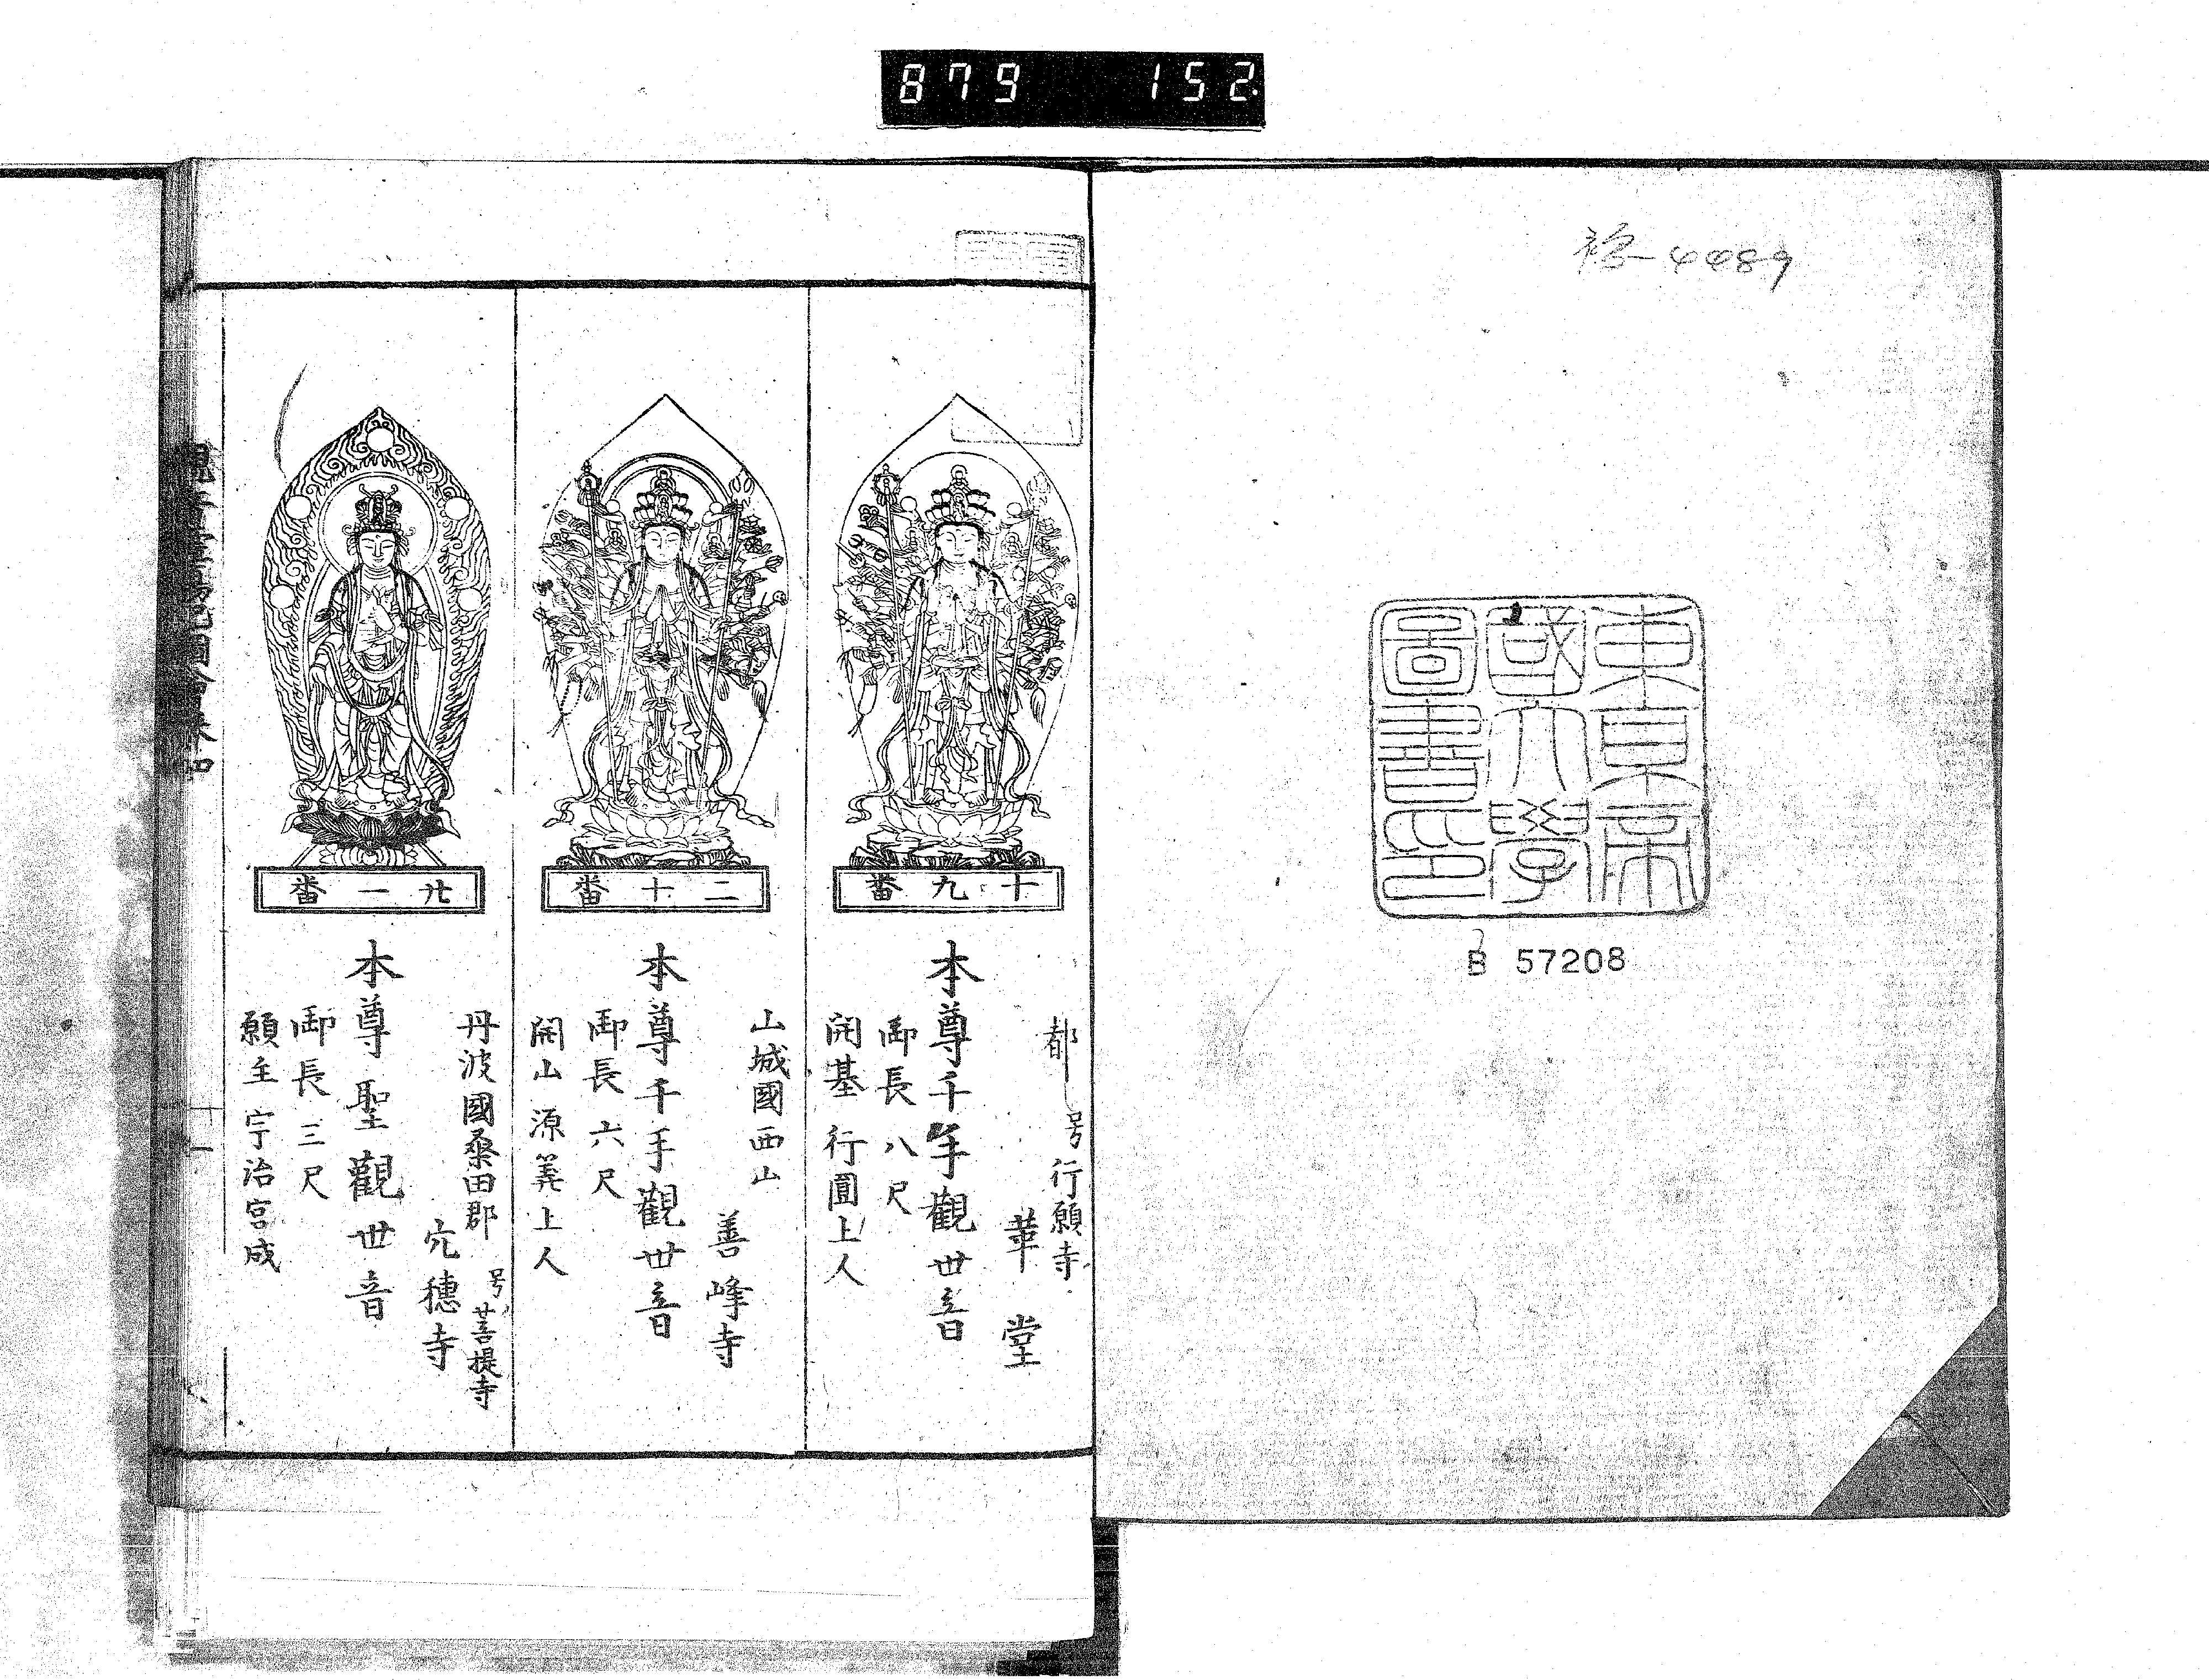 879 152
稔-4489
東京帝
國大學
圖書印
B 57208
十九番
都 号行願寺
華堂
本尊千手觀世音
御長八尺
開基 行圓上人
二十番
山城國西山
善峰寺
本尊千手觀世音
御長六尺
開山 源筭上人
廿一番
丹波國桑田郡 号菩提寺
穴穗寺
本尊聖觀世音
御長三尺
願主 宇治宮成
十一